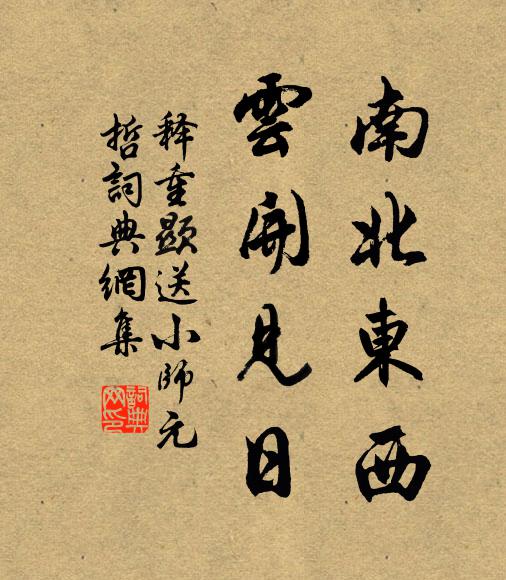 南北東西
雲開見日
釋重顯送小師元
哲詞典網集
詞典網印